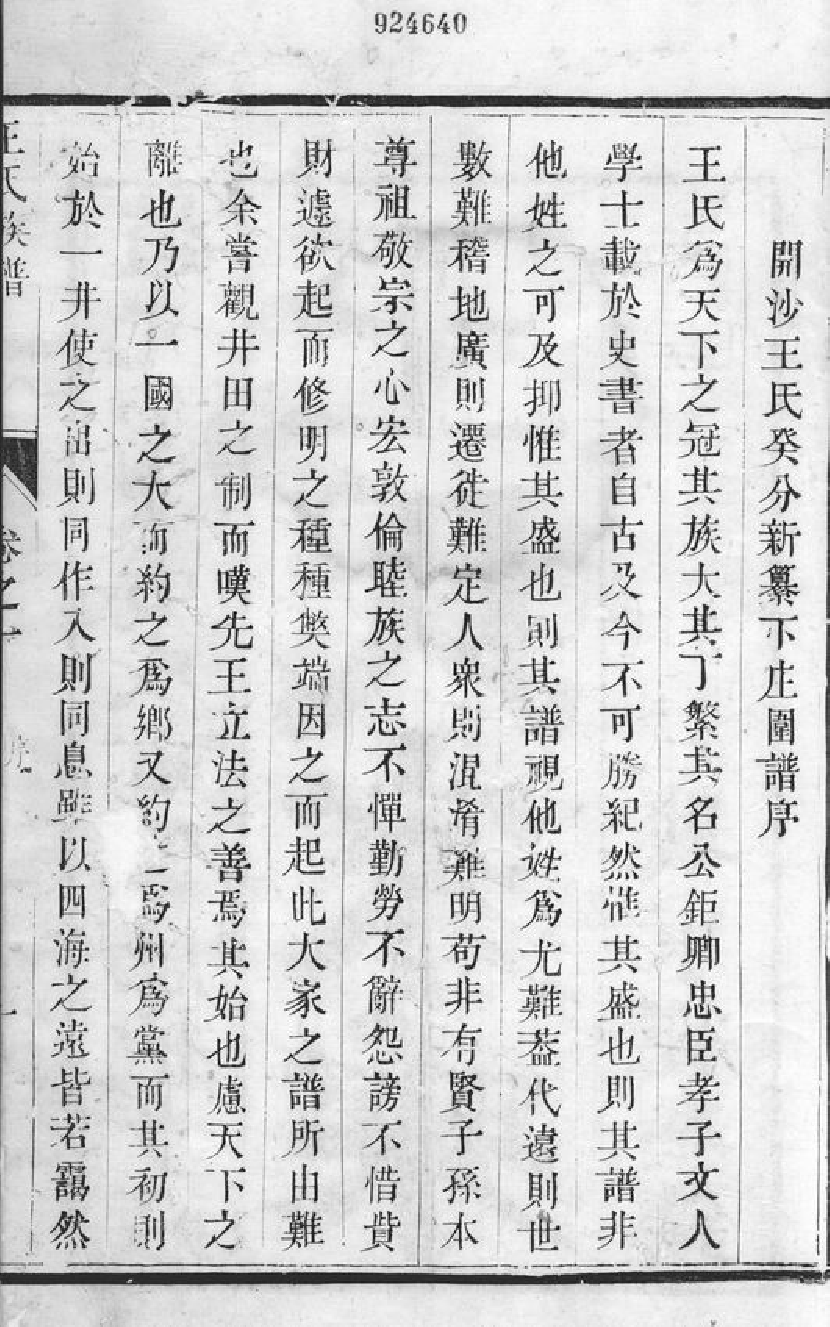 924640
開沙王氏癸分新纂下庄圍譜序
王氏爲天下之冠其族大其丁繁其名公鉅卿忠臣孝子文人
學士載於史書者自古及今不可勝紀然惟其盛也則其譜非
他姓之可及抑惟其盛也則其譜視他姓爲尤難葢代遠則世
數難稽地廣則遷徙難定人衆則混淆難明苟非有賢子孫本
尊祖敬宗之心宏敦倫睦族之志不憚勤勞不辭怨謗不惜貲
財遽欲起而修明之種種獘端因之而起此大家之譜所由難
也余嘗觀井田之制而嘆先王立法之善焉其始也慮天下之
離也乃以一國之大而約之爲鄉又約爲州爲黨而其初則
始於一井使之出則同作入則同息雖以四海之遠皆若靄然
王氏族譜
卷之
序
一